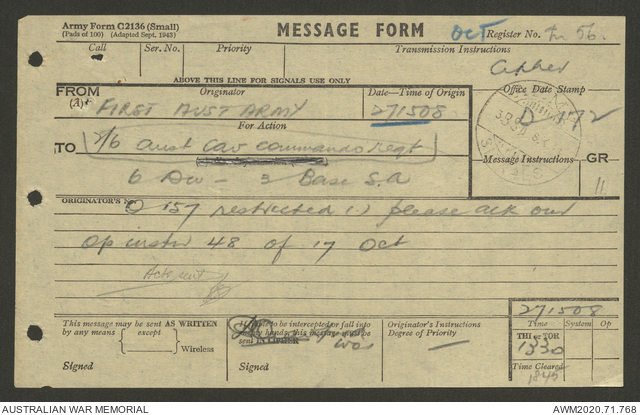 Army Form C2136 (Small)
(Pads of 100) (Adapted Sept. 1943)
MESSAGE FORM
Oct
Register No. 56.
Call
Ser. No.
Priority
Transmission Instructions
Cipher
ABOVE THIS LINE FOR SIGNALS USE ONLY
FROM
(A)
Originator
Date—Time of Origin
Office Date Stamp
FIRST AUST ARMY
271508
D 172
For Action
TO
2/6 aust cav commando regt
Message Instructions
GR
6 Div - 3 Base S.A
11
ORIGINATOR'S No.
O 157 restricted (.) please ack our
Op instn 48 of 17 Oct
Ack sent
This message may be sent AS WRITTEN
by any means
except
Wireless
Signed
If liable to be intercepted or fall into
enemy hands, this message must be
sent IN CIPHER
Signed
Originator's Instructions
Degree of Priority
271508
Time
System
Op
THI or TOR
1330
Time Cleared
1845
AUSTRALIAN WAR MEMORIAL
AWM2020.71.768